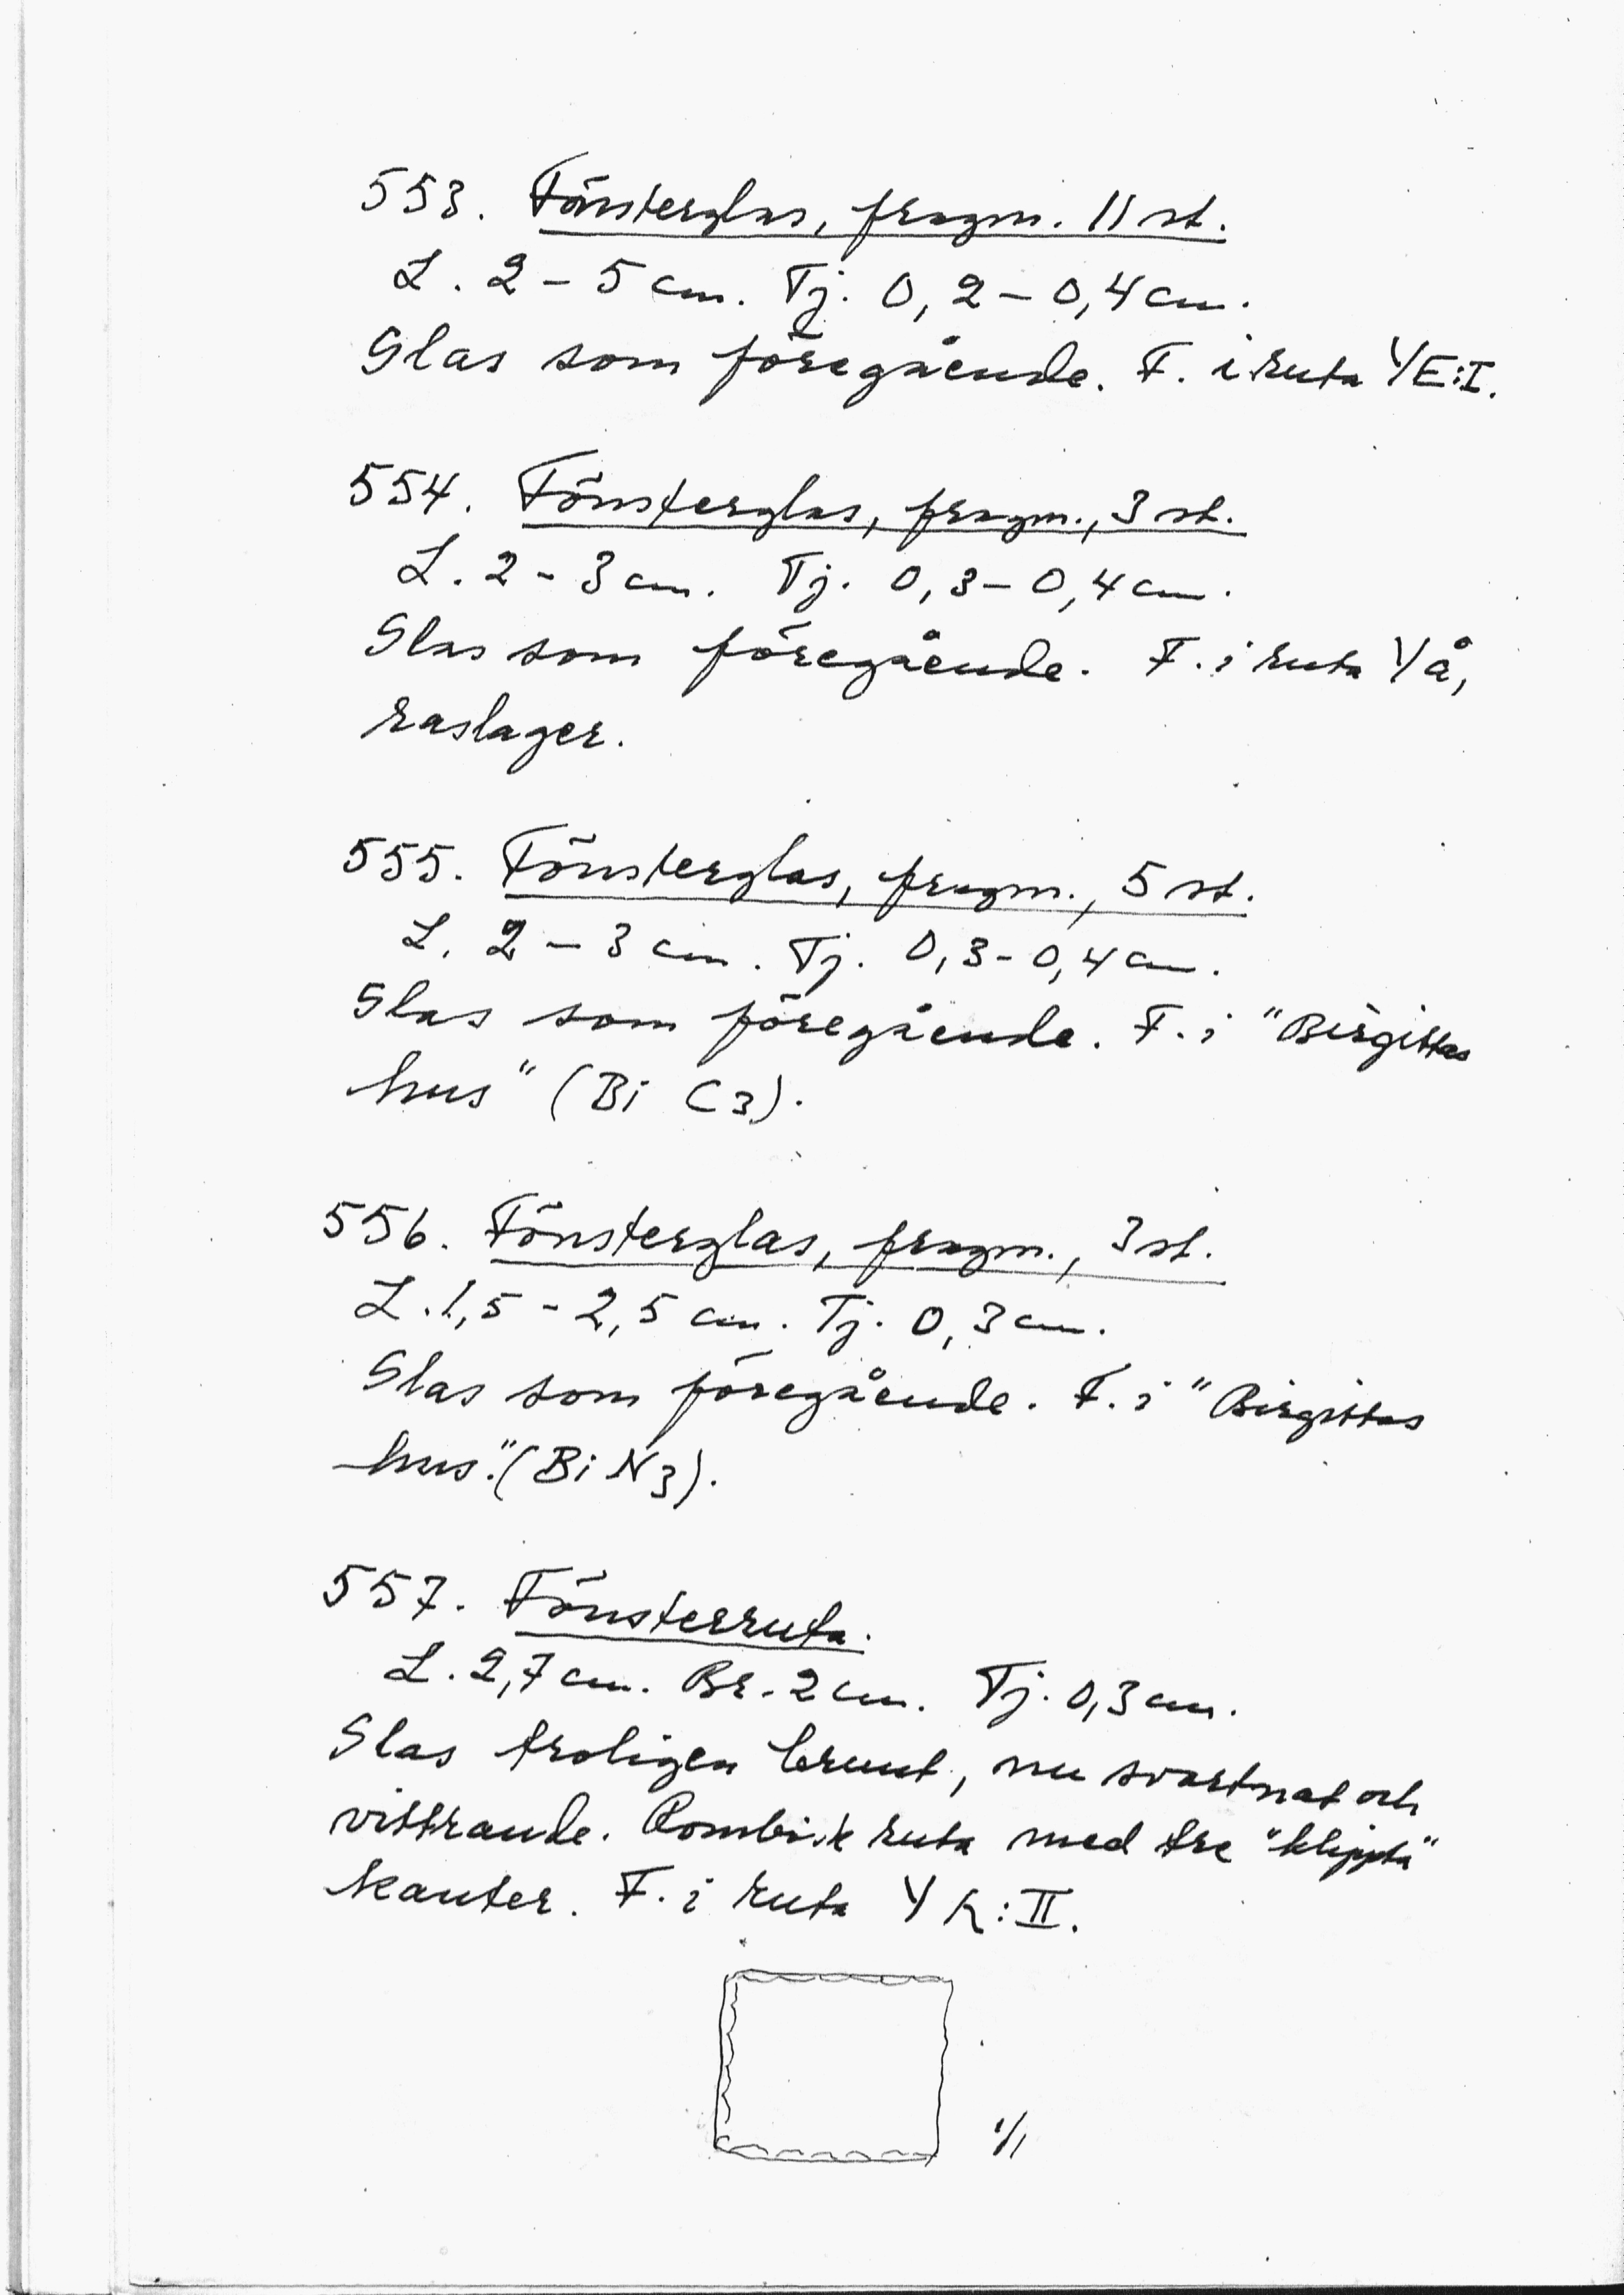 553. Fönsterglas, fragm. 11 st.
L. 2 – 5 cm. Tj. 0,2 – 0,4 cm.
Glas som föregående. F. i ruta Y E:I.
554. Fönsterglas, fragm., 3 st.
L. 2 - 3 cm. Tj. 0,3 – 0,4 cm.
Glas som föregående. F. i ruta Y å,
raslager.
555. Fönsterglas, fragm., 5 st.
L. 2 – 3 cm. Tj. 0,3 - 0,4 cm.
Glas som föregående. F. i "Birgittas
hus" (Bi C3).
556. Fönsterglas, fragm., 3 st.
L. 1,5 - 2,5 cm. Tj. 0,3 cm.
Glas som föregående. F. i "Birgittas
hus." (Bi N3).
557. Fönsterruta.
L. 2,7 cm. Br. 2 cm. Tj. 0,3 cm.
Glas troligen brunt, nu svartnat och
vittrande. Rombisk ruta med tre "klippta"
kanter. F. i ruta Y K:II.
1/1